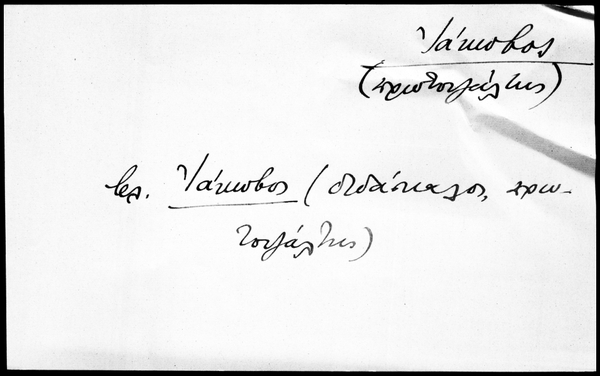 Ἰάκωβος
(πρωτοψάλτης)
βλ. Ἰάκωβος (διδάσκαλος, πρω-
τοψάλτης)